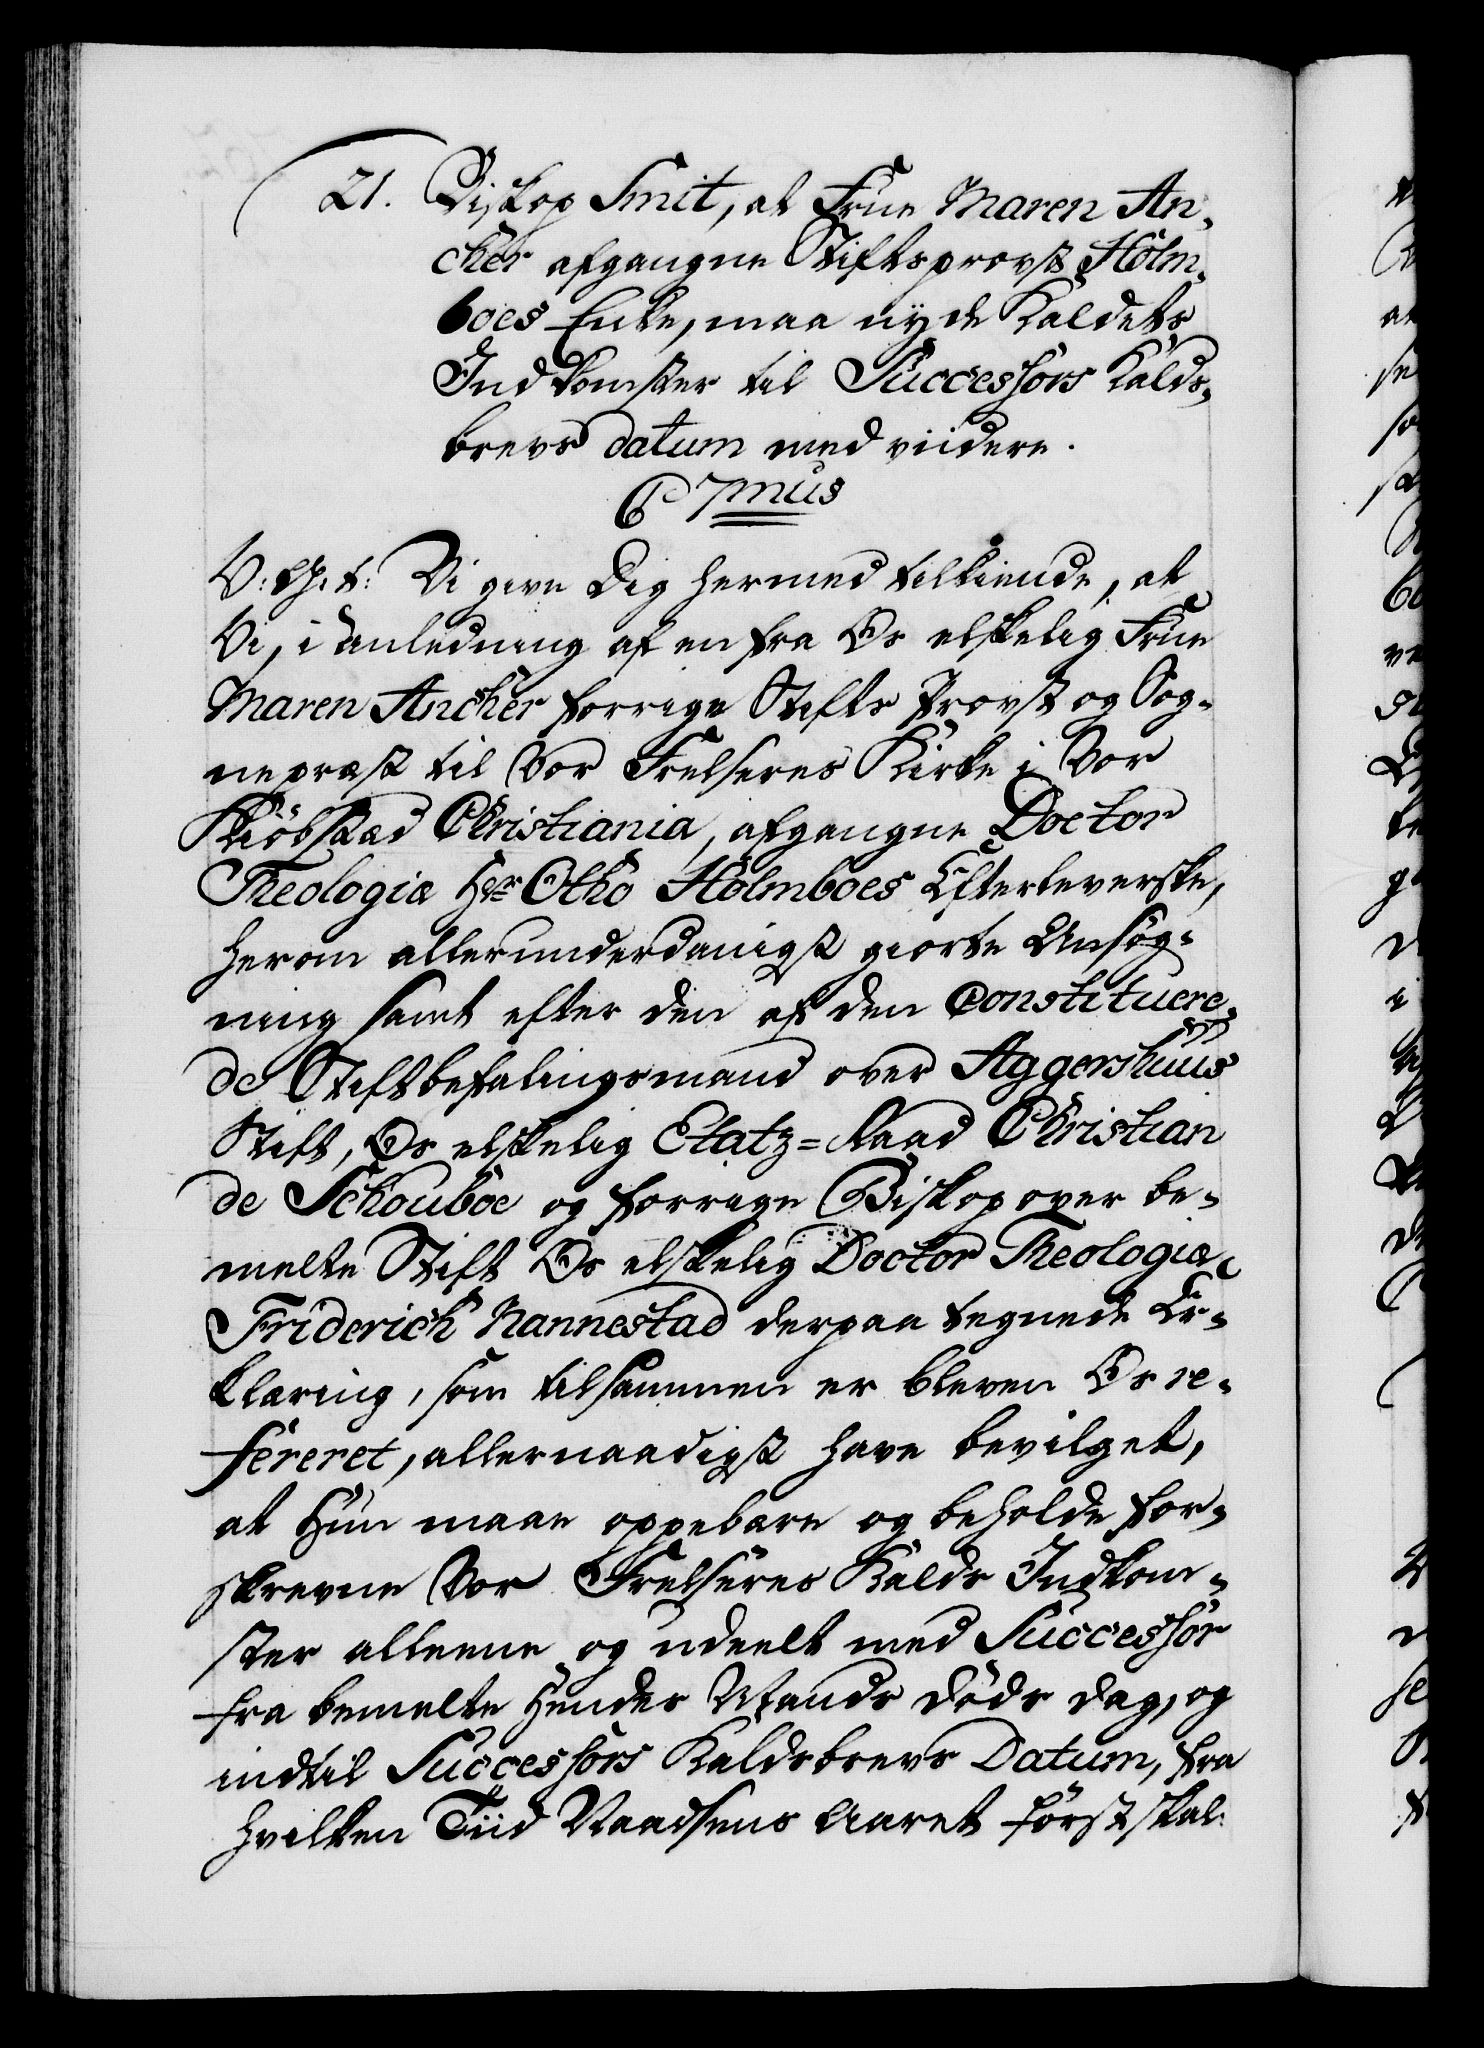 21. Biskop Smit, at Frue Maren An-
cher afgangne Stiftsprovst Holm-
boes Enke, maa nyde Kaldets
Indkomster til Successors Kalds-
brevs datum med viidere.
C 7mus
V: G: t: Vi give Dig hermed tilkiende, at
Vi, i Anledning af en fra Os elskelig Frue
Maren Ancher forrige Stifts Provst og Sog-
nepræst til Vor Frelseres Kirke i Vor
Kiøbstæd Christiania, afgangne Doctor
Theologiæ Hr Otho Holmboes Efterleverske,
herom allerunderdanigst giorte Ansøg-
ning samt efter den af den Constituere-
de Stiftbefalingsmand over Aggershuus
Stift, Os elskelig Etatz=Raad Christian
de Schouboe og forrige Biskop over be-
melte Stift Os elskelig Doctor Theologiæ
Friderich Nannestad derpaa tegnede Er-
klæring, som tilsammen er bleven Os re-
fereret, allernaadigst have bevilget,
at Hun maae oppebære og beholde for-
skrevne Vor Frelseres Kalds Indkom-
ster alleene og udeelt med Successor
fra bemelte Hendes Mands Døds Dag, og
indtil Successors Kaldsbrevs Datum, fra
hvilken Tiid Naadsens Aaret først skal